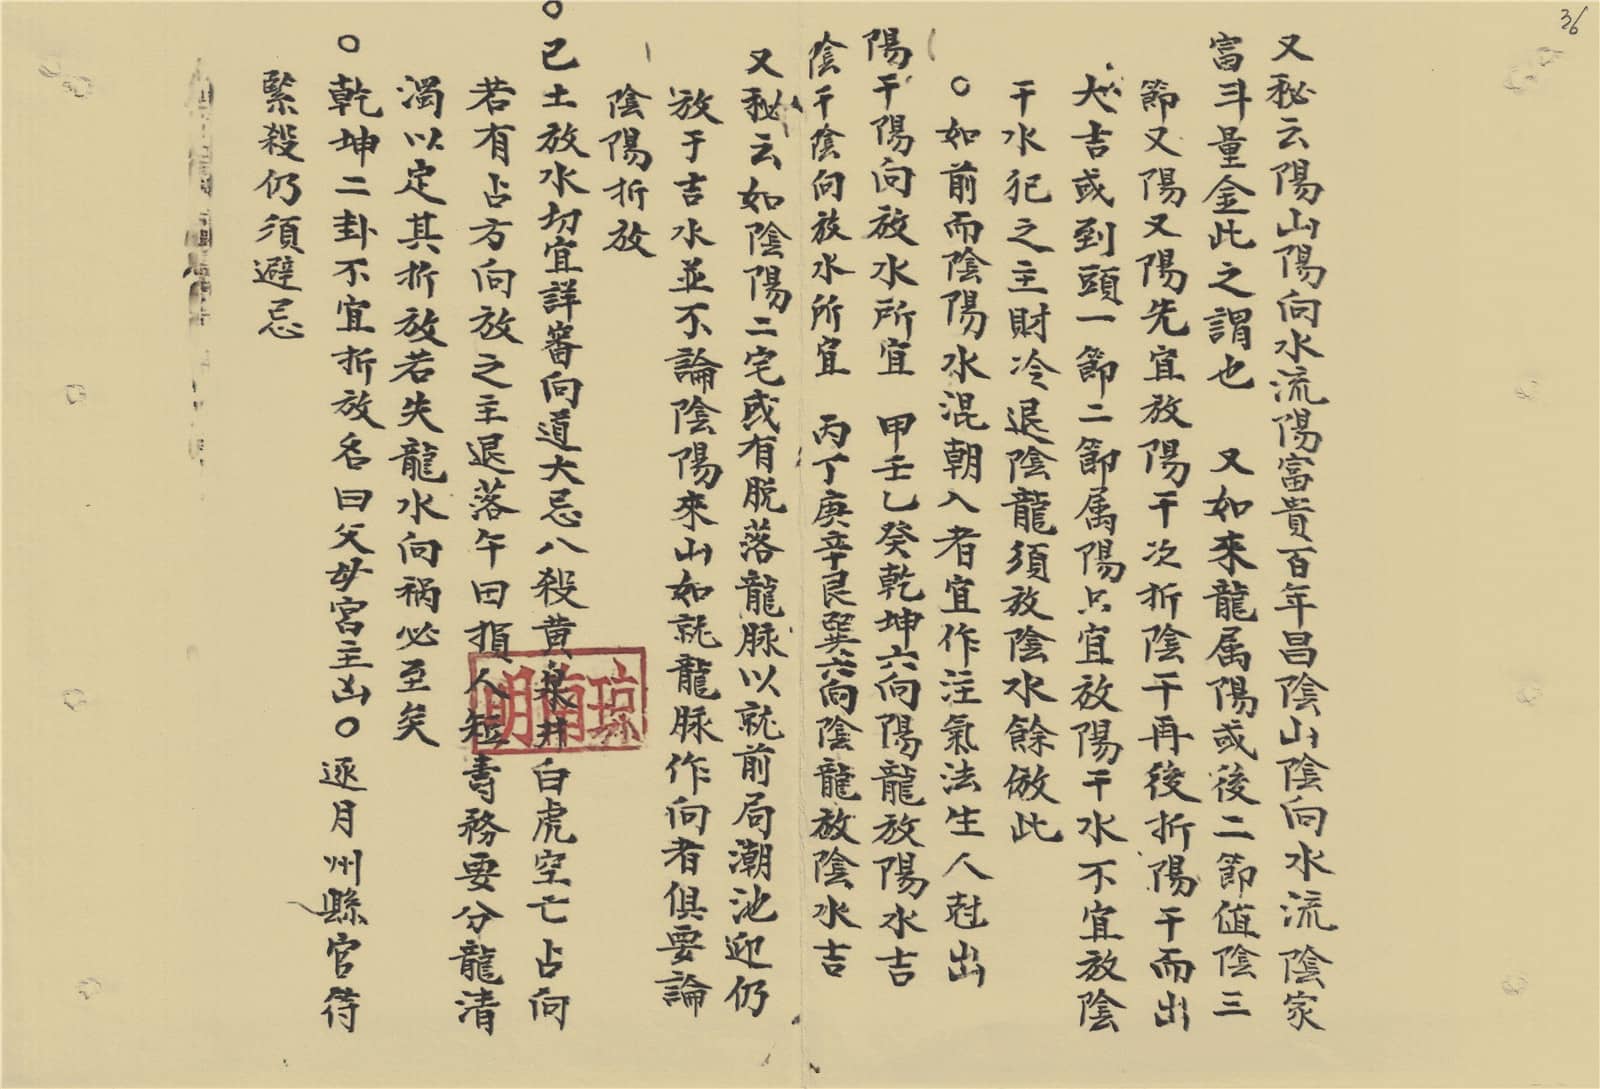 36
又秘云陽山陽向水流陽富貴百年昌陰山陰向水流陰家
富斗量金此之謂也 又如來龍属陽或後二節值陰三
節又陽又陽先宜放陽干次折陰干再後折陽干而出
大吉或到頭一節二節属陽只宜放陽干水不宜放陰
干水犯之主財冷退陰龍須放陰水餘倣此
○如前而陰陽水混朝入者宜作注氣法生人尅出
陽干陽向放水所宜 甲壬乙癸乾坤六向陽龍放陽水吉
陰干陰向放水所宜 丙丁庚辛艮巽六向陰龍放陰水吉
又秘云如陰陽二宅或有脱落龍脉以就前局潮池迎仍
放于吉水並不論陰陽來山如就龍脉作向者俱要論
陰陽折放
○已土放水切宜詳審向道大忌八殺黄泉井白虎空亡占向
若有占方向放之主退落午田損人短壽務要分龍清
濁以定其折放若失龍水向祸必至矣
○乾坤二卦不宜折放名曰父母宮主凶○逐月州縣官符
緊殺仍須避忌
琼南明